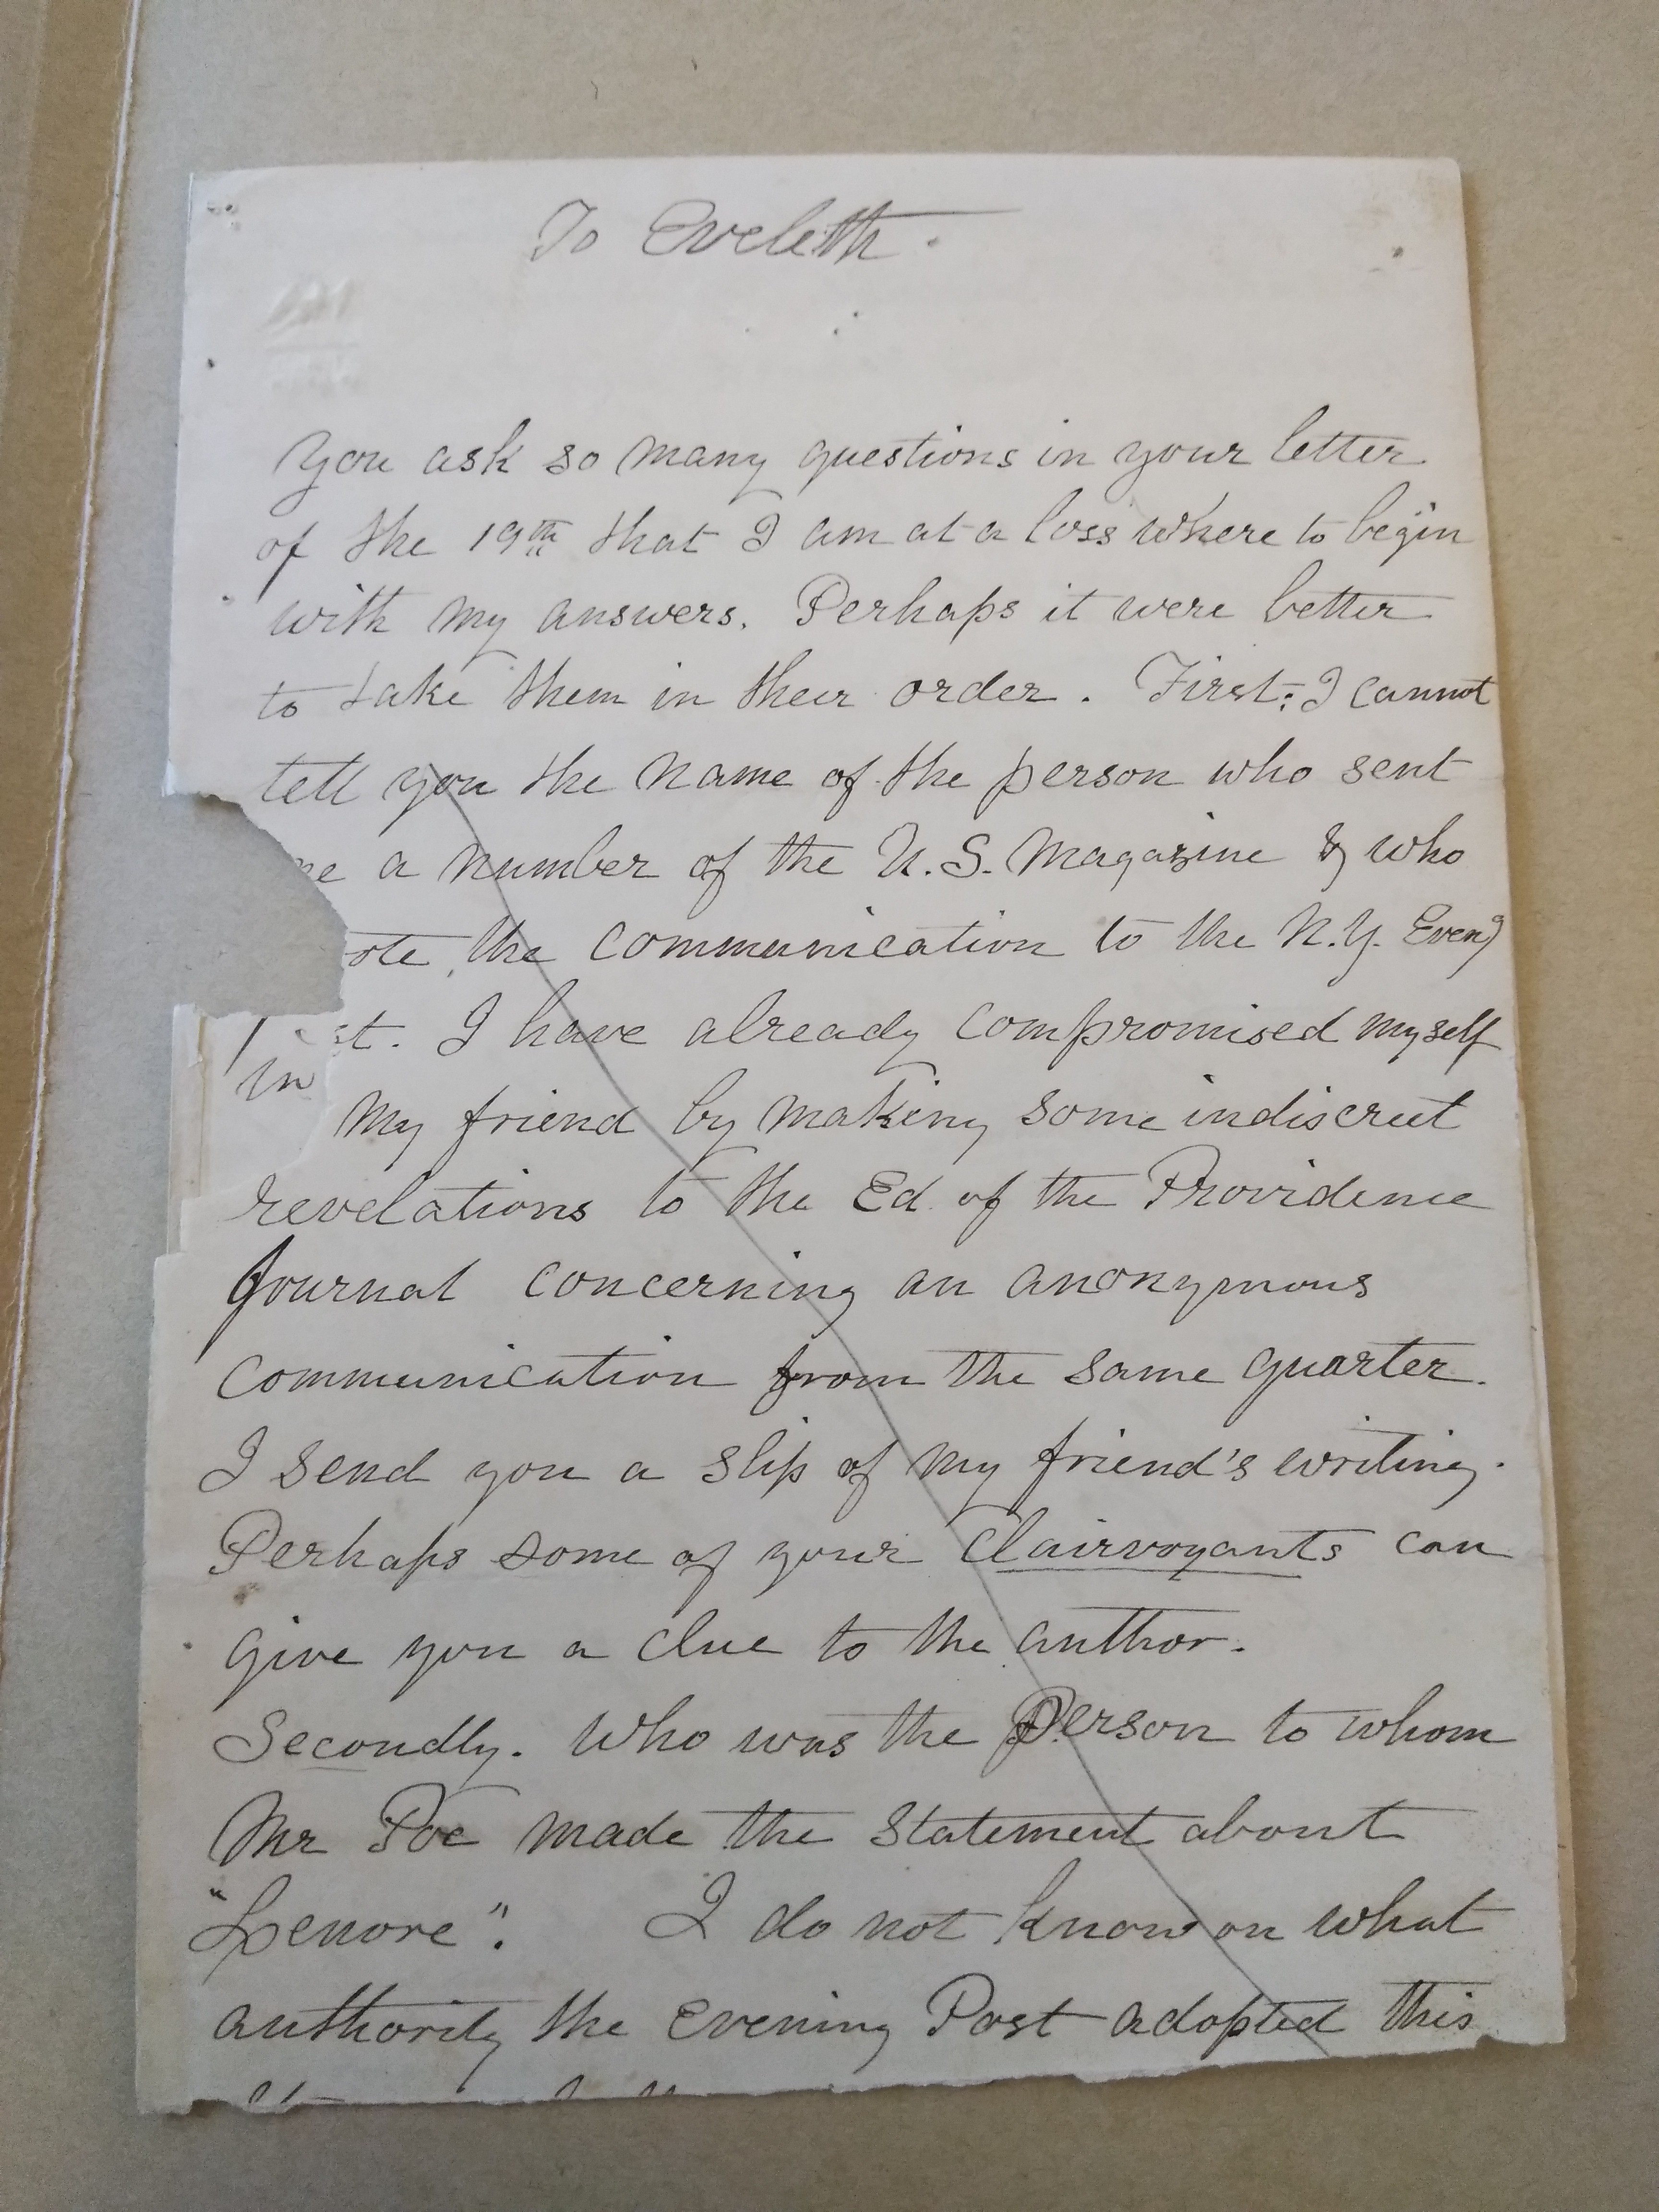 To Eveleth.
You ask so many questions in your letter
of the 19th that I am at a loss where to begin
with my answers. Perhaps it were better
to take them in their order. First: I cannot
tell you the name of the person who sent
me a number of the U.S. Magazine & who
ote the communication to the N.Y. Eveng
st. I have already compromised myself
in
my friend by making some indiscreet
revelations to the Ed. of the Providence
Journal concerning an anonymous
communication from the same quarter.
I send you a slip of my friend's writing.
Perhaps some of your Clairvoyants can
give you a clue to the author.
Secondly. Who was the Person to whom
Mr Poe made the statement about
"Lenore". I do not know on what
authority the Evening Post adopted this